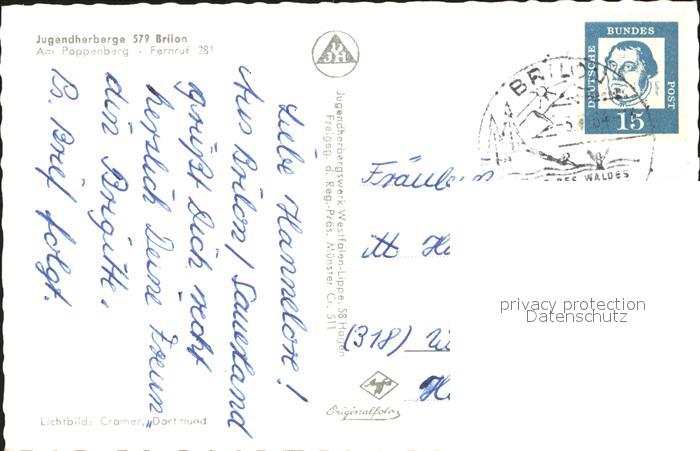 Jugendherberge 579 Brilon
Am Poppenberg - Fernruf 281
Liebe Hannelore!
Aus Brilon / Sauerland
grüßt Dich recht
herzlich Deine Freun
din Brigitte.
B. Brief folgt.
Lichtbild: Cramer, Dortmund
Jugendherbergswerk Westfalen-Lippe, 58 Hagen
Freigeg. d. Reg.-Präs. Münster Cr. 511
DEUTSCHE
BUNDES
POST
15
BRILON
DES WALDES
Fräulein
(318)
privacy protection
Datenschutz
Agfa
Originalfoto